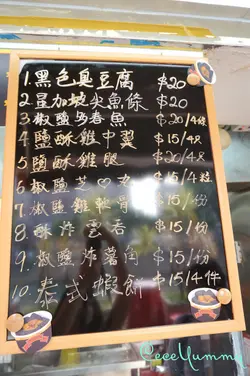 1.黑色臭豆腐 $20
2.星加坡尖魚條 $20
3.椒鹽多春魚 $20/4條
4.鹽酥雞中翼 $15/4只
5.鹽酥雞腿 $20/4只
6.椒鹽芝心丸 $15/4粒
7.椒鹽雞軟骨 $15/份
8.酥炸雲吞 $15/份
9.椒鹽炸薯角 $15/份
10.泰式蝦餅 $15/4件
CeceYummy